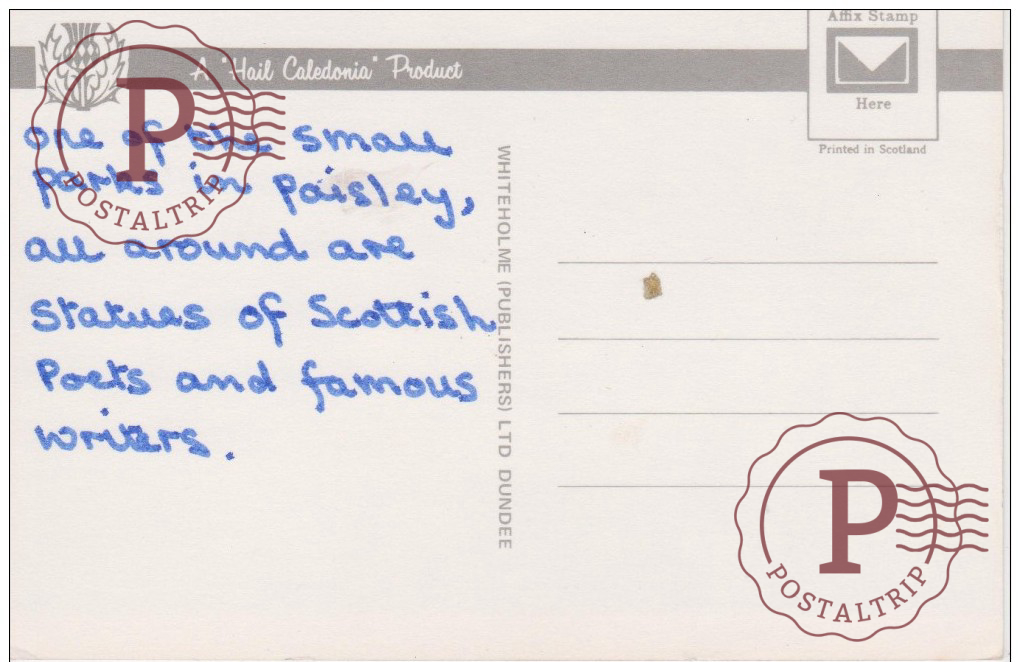 A "Hail Caledonia" Product
Affix Stamp
Here
Printed in Scotland
one of the small
parks in Paisley,
all around are
statues of Scottish
Poets and famous
writers.
WHITEHOLME (PUBLISHERS) LTD DUNDEE
P
POSTALTRIP
P
POSTALTRIP